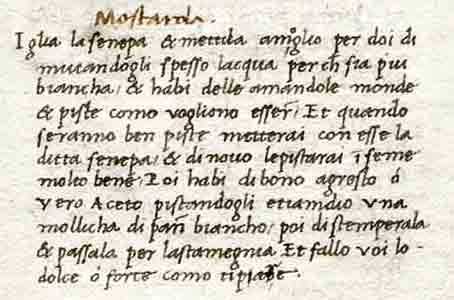 Mostarda.
Iglia la senepa & mettila amoglio per doi di
mutandogli spesso lacqua perch sia piu
biancha/ & habi delle amandole monde
& piste como vogliono esser/ Et quando
seranno ben piste metterai con esse la
ditta senepa/ & di novo le pistarai ĩseme
molto bene/ Poi habi di bono agresto ó
vero Aceto pistandogli etiamdio una
mollicha di pañ biancho/ poi distemperala
& passala per la stamegnia Et fallo voi lo-
dolce ó forte como ti piace.